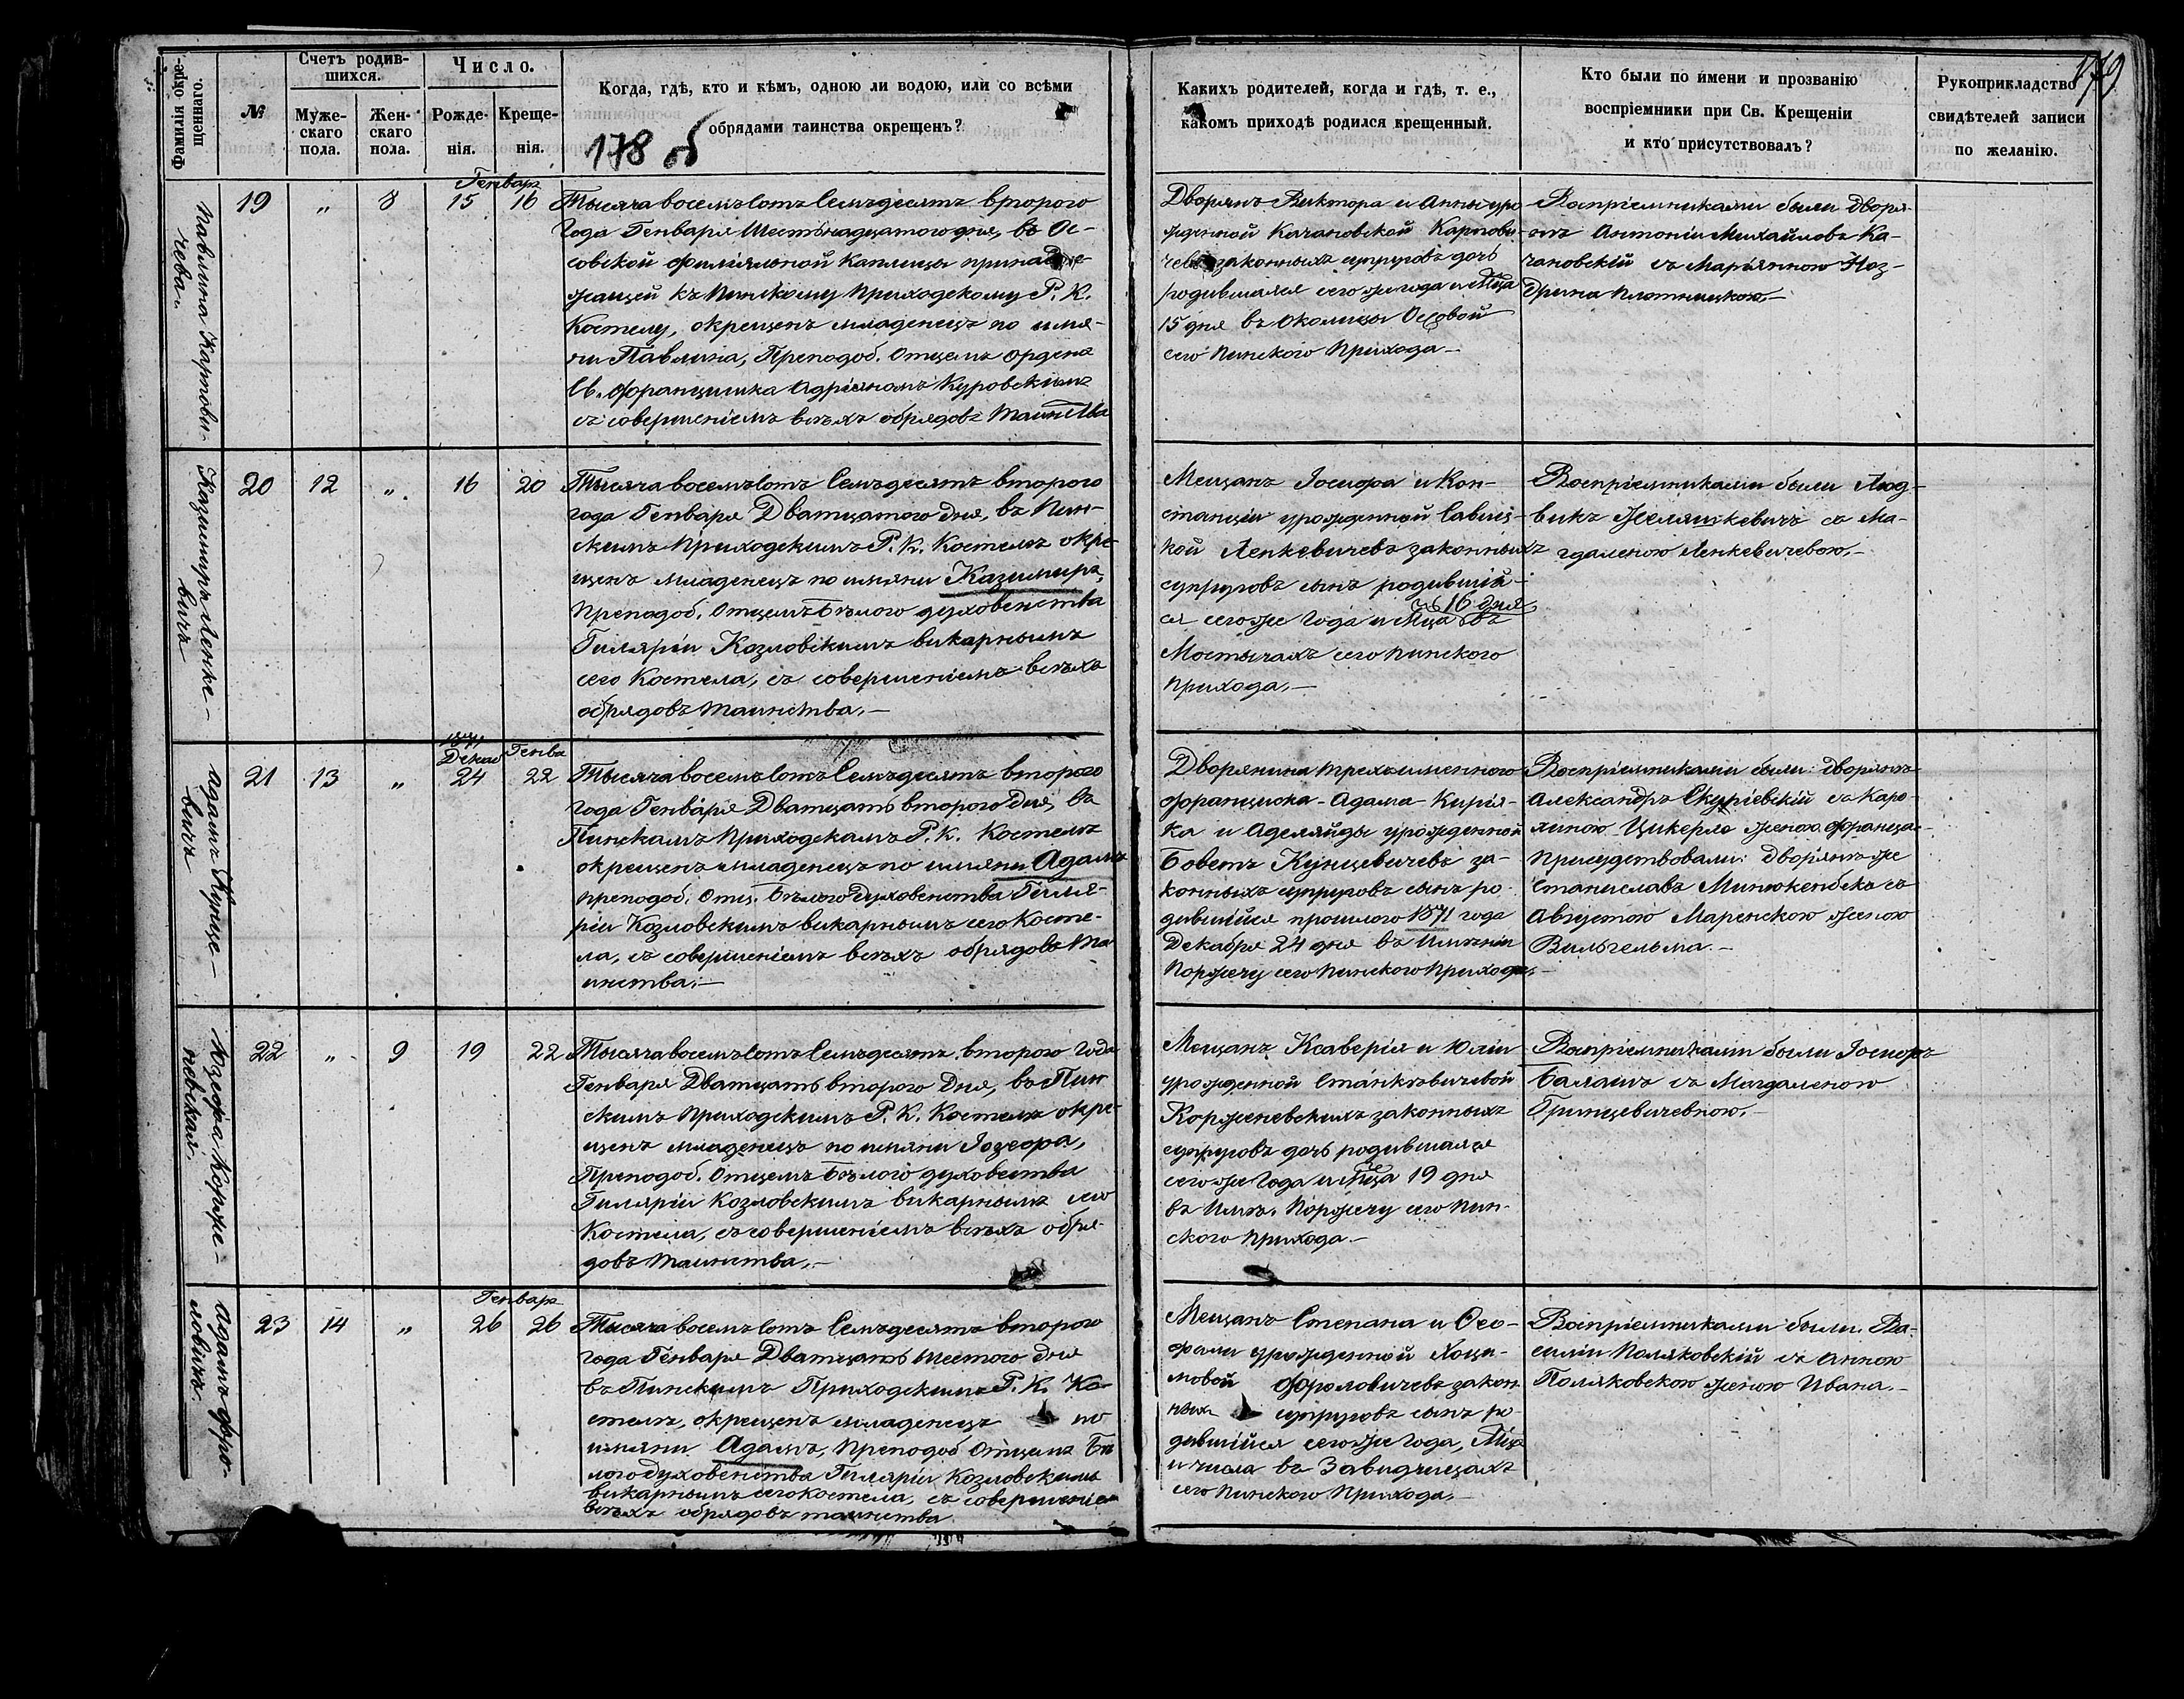 179
178 об
Фамилія окре-
щеннаго.
№
Счетъ родив-
шихся.
Муже-
скаго
пола.
Жен-
скаго
пола.
Число.
Рожде-
нія.
Креще-
нія.
Когда, гдѣ, кто и кѣмъ, одною ли водою, или со всѣми
обрядами таинства окрещенъ?
Какихъ родителей, когда и гдѣ, т. е.,
какомъ приходѣ родился крещенный.
Кто были по имени и прозванію
воспріемники при Св. Крещеніи
и кто присутствовалъ?
Рукоприкладство
свидѣтелей записи
по желанію.
Павлина Карпови-
чева
19
"
8
Генвар
15
16
Тысяча восемъсотъ Семъдесятъ второго
года Генваря Шестьнадцатого дня, въ Ос-
совской филіяльной Каплицы принадле-
жащей къ Пинскому Приходскому Р. К.
Костелу, окрещенъ младенецъ по имя-
ни Павлина, Преподоб. Отцемъ ордена
Св. Францишка Адріяномъ Куровскимъ
съ совершеніемъ всѣхъ обрядовъ Таинства
Дворянъ Виктора и Анны уро
жденной Качановской Карпови-
чевъ законныхъ супруговъ дочь
родившаяся сего же года и Мца
15 дня въ Околицы Оссовой
сего Пинского Прихода
Воспріемниками были дворя-
нъ Антоніи Михайловъ Ка-
чановскій съ Маріянною
Плотницкою,
Казимиръ Ленке-
вичъ
20
12
"
16
20
Тысяча восемъсотъ Семъдесятъ второго
года Генваря Дватцатого дня, въ Пин-
скимъ Приходскимъ Р. К. Костелѣ окре-
щенъ младенецъ по имяни Казимиръ,
Преподоб. Отцемъ Бѣлого духовенства
Гиляріи Козловскимъ викарнымъ
сего Костела, съ совершеніемъ всѣхъ
обрядовъ таинства.
Мещанъ Іосифа и Кон-
станціи урожденной Савиц-
кой Ленкевичевъ законныхъ
супруговъ сынъ родившій-
ся сего же Года и Мца 16 дня въ
Мостычахъ сего Пинского
Прихода,
Воспріемниками были Люд-
викъ Желяшкевичъ съ Ма-
гдаленою Ленкевичевою,
Адамъ Кунце-
вичъ
21
13
"
1871
Декаб
24
Генва
22
Тысяча восемъсотъ Семъдесятъ второго
года Генваря Дватцать второго дня, въ
Пинскимъ Приходскимъ Р. К. Костелѣ
окрещенъ младенецъ по имяни Адамъ
преподоб. Отц. Бѣлого духовенства Гиля-
ріи Козловскимъ викарнымъ сего Косте-
ла, съ совершеніемъ всѣхъ обрядовъ та
инства,
Дворянина трехъименного
Францишка-Адама-Кирія-
ка и Аделяйды урожденной
Боветъ Кунцевичевъ за-
конныхъ супруговъ сынъ ро-
дившійся прошлого 1871 года
Декабря 24 дня въ Имѣніи
Поржечу сего Пинского Прихода,
Воспріемниками были: дворянъ
Александръ Скуріевскій съ Каро-
линою Цикерло женою Франца
Присудствовали: дворянъ же
Станиславъ съ
Августою Маренскою женою
Вильгельма.
Юзефа Корже-
невская
22
"
9
19
22
Тысяча восемъсотъ Семъдесятъ второго года
Генваря Дватцать второго дня, въ Пин
скимъ Приходскимъ Р. К. Костелѣ окре-
щенъ младенецъ по имяни Іозефа,
Преподоб. Отцемъ Бѣлого духовества
Гиляріи Козловскимъ викарнымъ сего
Костела, съ совершеніемъ всѣхъ обря-
довъ таинства,
Мещанъ Ксаверія и Юліи
урожденной Станкѣвичевой
Корженевскихъ законныхъ
супруговъ дочь родившаяся
сего же года и Мца 19 дня
въ Имѣ. Поржечу сего Пин-
ского Прихода
Воспріемниками были Іосифъ
Балашъ съ Магдаленою
Гринцевичевною,
Адамъ Фро-
ловичъ
23
14
"
Генвар
26
26
Тысяча восемъсотъ Семъдесятъ второго
года Генваря Дватцать шестого дня
въ Пинскимъ Приходскимъ Р. К. Ко-
стелѣ, окрещенъ младенецъ по
имяни Адамъ, Преподоб Отцемъ Бѣ
лого духовенства Гиляріи Козловскимъ
викарнымъ сего костела, съ совершеніем
всѣхъ обрядовъ таинства
Мещанъ Степана и Ѳео-
филіи урожденной
Фроловичевъ закон
ныхъ супруговъ сынъ ро-
дившійся сего же Года, Мца
и числа въ Завидчицахъ
сего Пинского Прихода,
Воспріемниками были. Ва-
силіи Поляковскій съ Анною
Поляковскою женою Ивана.